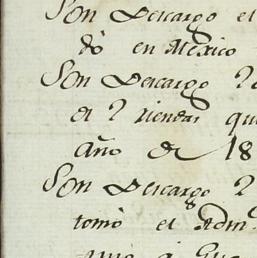 Son Descargo el
dò en Mexico
Son Descargo 2
de 2 riendas qu
año de 18
Son Descargo 2
tomò el Adm